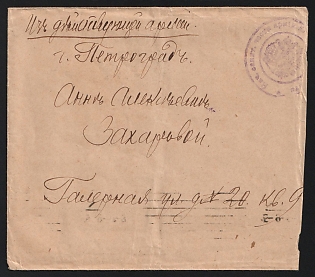 Изъ дѣйствующей арміи.
г. Петроградъ.
Аннѣ Алексѣевнѣ
Захаровой.
Галерная ул. д. № 20 кв. 9